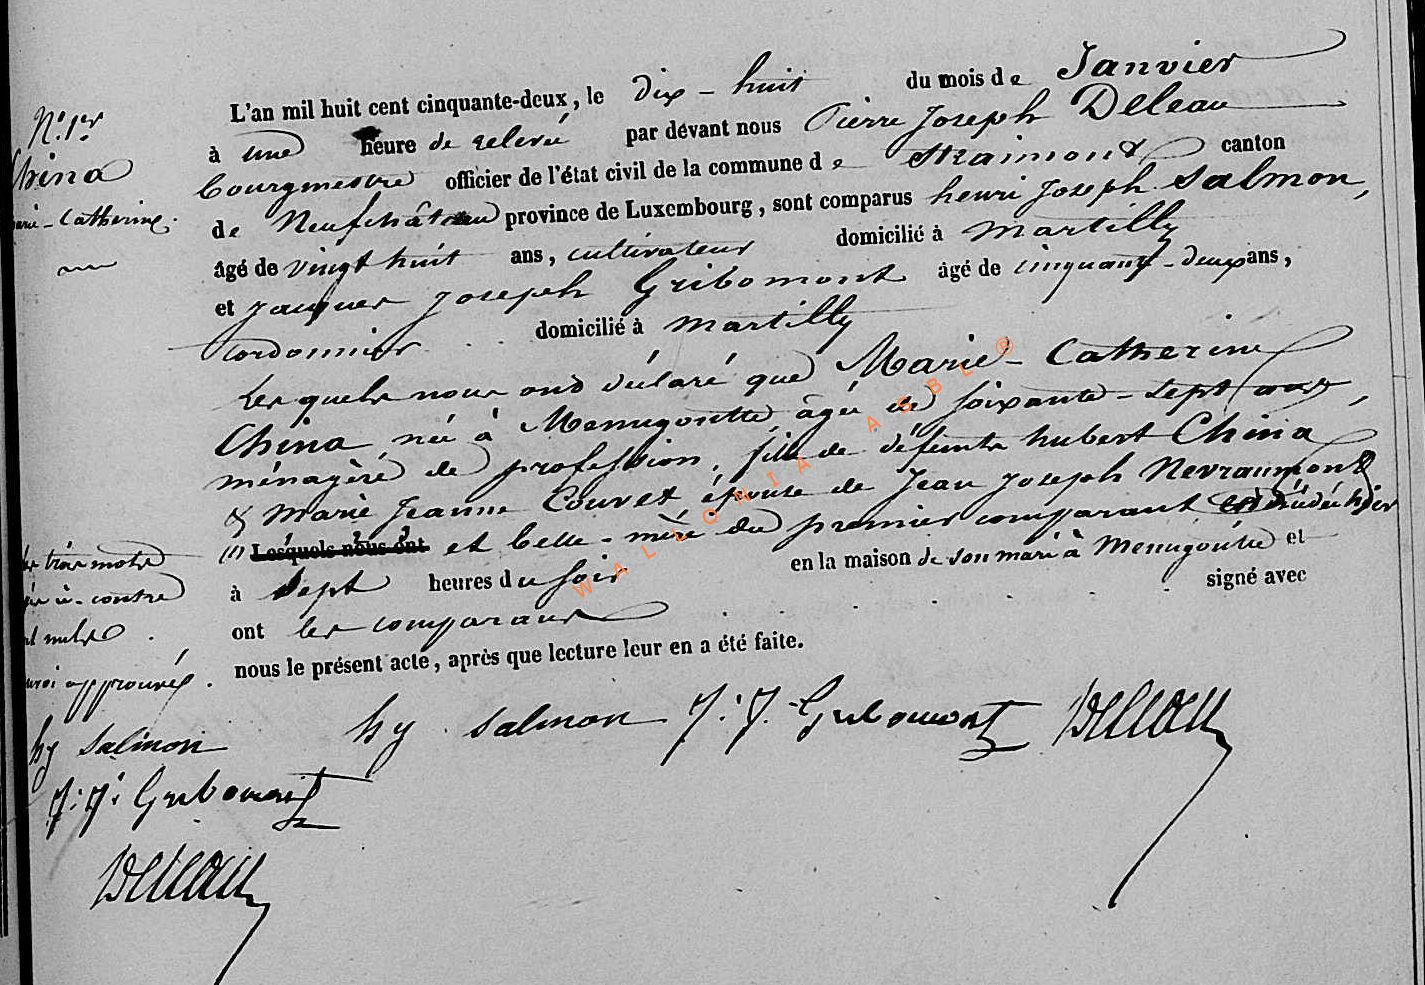 N.º 1.er
China
Marie-Catherine.
L'an mil huit cent cinquante-deux, le dix-huit du mois de Janvier
à une heure de relevée par dévant nous Pierre Joseph Deleau
bourgmestre officier de l'état civil de la commune de Straimont canton
de Neufchâteau province de Luxembourg, sont comparus henri Joseph Salmon,
âgé de vingt huit ans, cultivateur domicilié à Martilly
et Jacques Joseph Gribomont âgé de cinquante-deux ans,
cordonnier domicilié à Martilly
Les quels nous ont déclaré que Marie-Catherine
China née à Menugoutte, âgée de soixante-sept ans,
ménagère de profession, fille de défunts hubert China
& Marie Jeanne Couvet épouse de Jean Joseph Nevraumont
(1) Lesquels nous ont et belle-mère du premier comparant est décédée hier
à Sept heures du soir en la maison de son mari à Menugoutte et
ont les comparans signé avec
nous le présent acte, après que lecture leur en a été faite.
les trois mots
ci-contre
sont nuls
approuvés.
hy Salmon
J: J: Gribomont
Deleau
hy Salmon J: J. Gribomont Deleau
WALLONIA ASBL ®